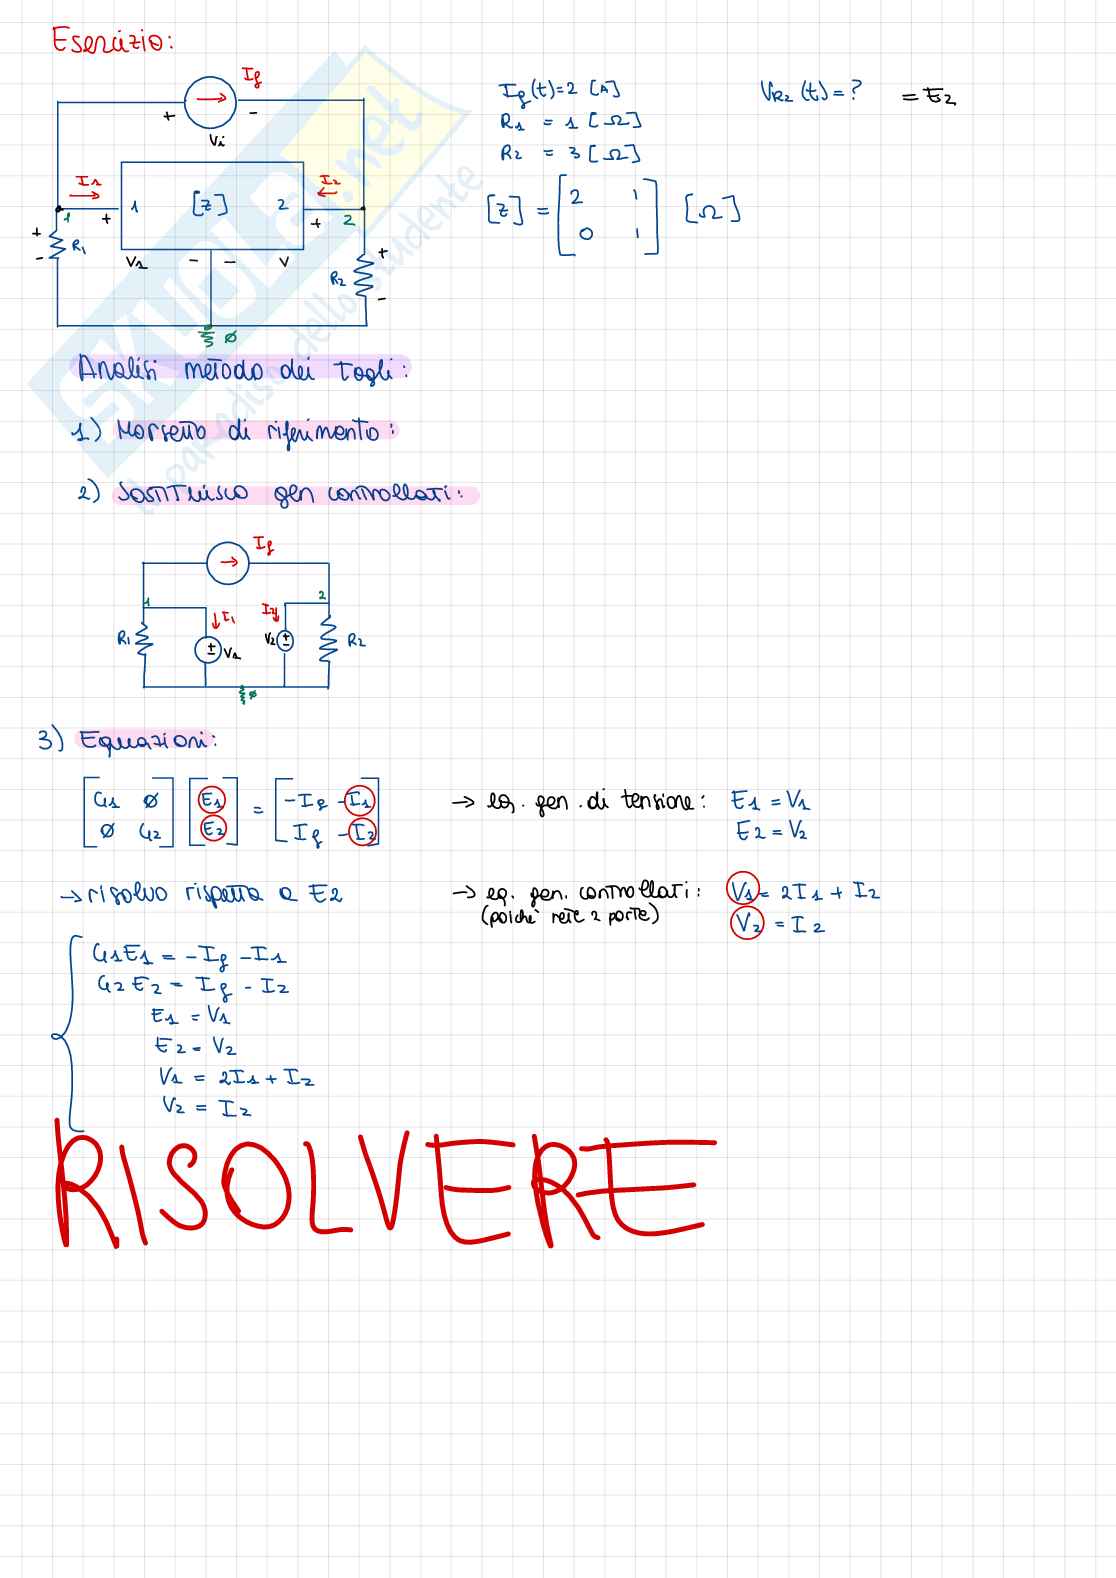 Esercizio:
Ig
+ -
Vi
I1 I2
1 [Z] 2
1 + + 2
+ - R1 V1 - - V R2 + -
ø
Ig(t)=2 [A] VR2 (t)=? = E2
R1 = 1 [Ω]
R2 = 3 [Ω]
[Z] = [2 1
0 1] [Ω]
SKUOLA.net
il paradiso dello studente
Analisi metodo dei Tagli:
1) Morsetto di riferimento:
2) Sostituisco gen controllati:
Ig
1 2
I1 I2
R1 ± V1 V2 ± R2
ø
3) Equazioni:
[G1 ø [E1 = [-Ig -I1
ø G2] E2] Ig -I2]
→ eq. gen. di tensione: E1 = V1
E2 = V2
→ risolvo rispetto a E2
→ eq. gen. controllati: V1 = 2I1 + I2
(poichè rete 2 porte) V2 = I2
G1E1 = -Ig -I1
G2E2 = Ig - I2
E1 = V1
E2 = V2
V1 = 2I1 + I2
V2 = I2
RISOLVERE